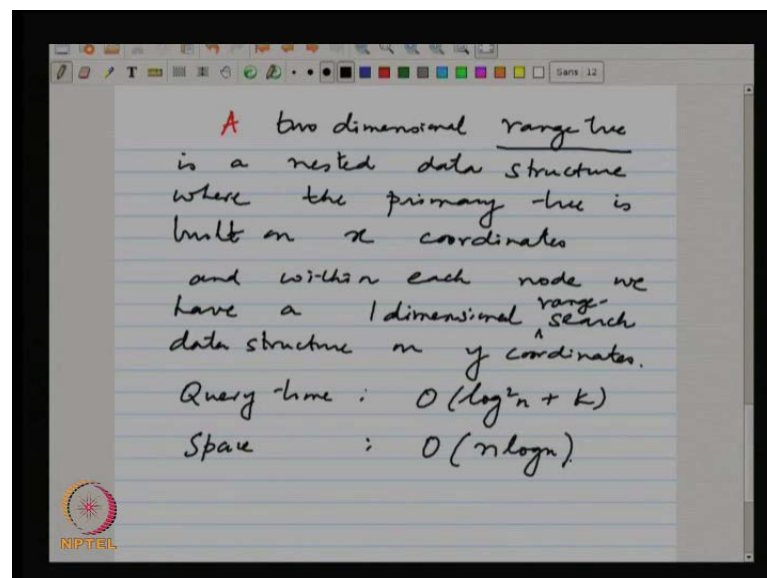 Sans 12
A two dimensional range tree
is a nested data structure
where the primary tree is
built on x coordinates
and within each node we
have a 1 dimensional range-search
data structure on y coordinates.
Query time : O(log²n + k)
Space : O(n logn).
NPTEL